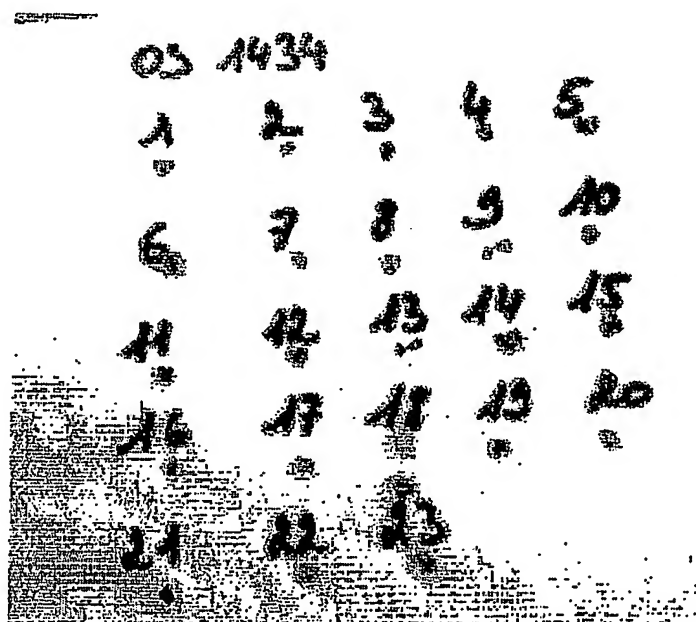 03 1434
1 2 3 4 5
6 7 8 9 10
11 12 13 14 15
16 17 18 19 20
21 22 23